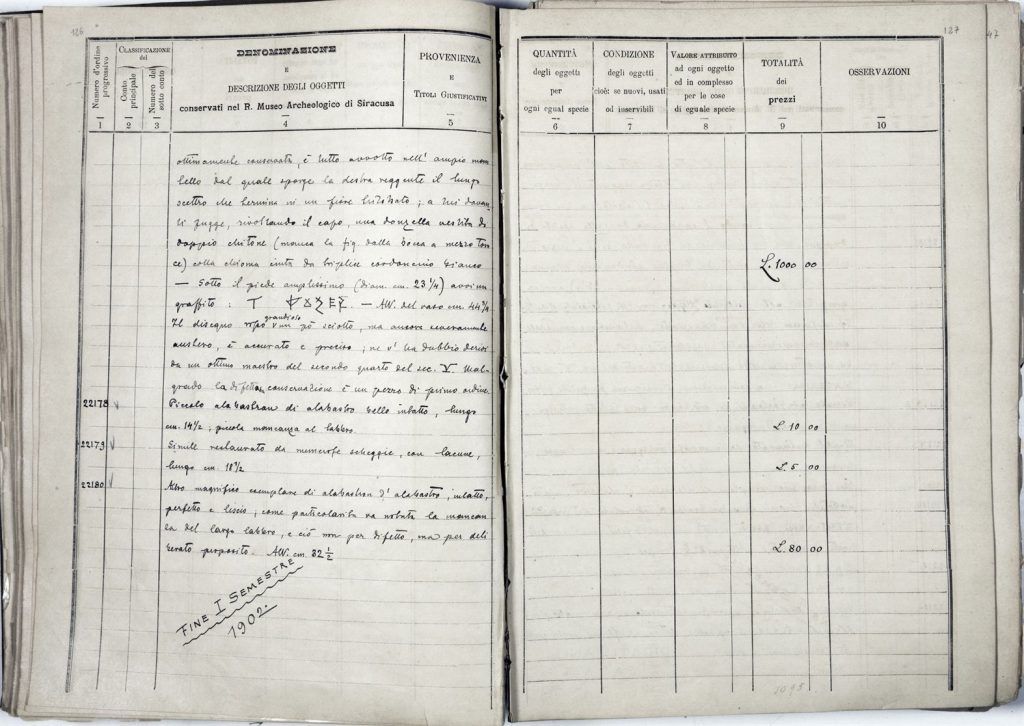 126
Numero d'ordine progressivo
CLASSIFICAZIONE del
Conto principale
Numero del sotto conto
DENOMINAZIONE
E
DESCRIZIONE DEGLI OGGETTI
conservati nel R. Museo Archeologico di Siracusa
PROVENIENZA
E
TITOLI GIUSTIFICATIVI
1 2 3 4 5
ottimamente conservata, è tutto avvolto nell' ampio man
tello dal quale sporge la destra reggente il lungo
scettro che termina in un fiore ; a lui davan
ti fugge, rivoltando il capo, una donzella vestita di
doppio chitone (manca la fig. dalla bocca a mezzo tor
ce) colla chioma cinta da triplice cordoncino bianco
— Sotto il piede amplissimo (diam. cm. 23 1/4) avvi un
graffito : — Alt. del vaso cm. 44 3/4
Il disegno grandioso un pò sciolto, ma ancora
austero, è accurato e preciso ; ne v' ha dubbio derivi
da un ottimo maestro del secondo quarto del sec. V. Mal-
grado la conservazione è un pezzo di primo ordine.
22178 Piccolo alabastron di alabastro bello intatto, lungo
cm. 14 1/2 ; piccola mancanza al labbro
22179 Simile restaurato da numerose scheggie, con lacune,
lungo cm. 18 1/2
22180 Altro magnifico esemplare di alabastron d' alabastro, intatto,
perfetto e liscio ; come particolarità va notata la mancan
za del largo labbro, e ciò non per difetto, ma per deli
berato proposito. Alt. cm. 32 1/2
FINE I SEMESTRE
1902.
127
47
QUANTITÀ
degli oggetti
per
ogni egual specie
CONDIZIONE
degli oggetti
cioè: se nuovi, usati
od inservibili
VALORE ATTRIBUTO
ad ogni oggetto
ed in complesso
per le cose
di eguale specie
TOTALITÀ
dei
prezzi
OSSERVAZIONI
6 7 8 9 10
L. 1000 00
L. 10 00
L. 5 00
L. 80 00
1095